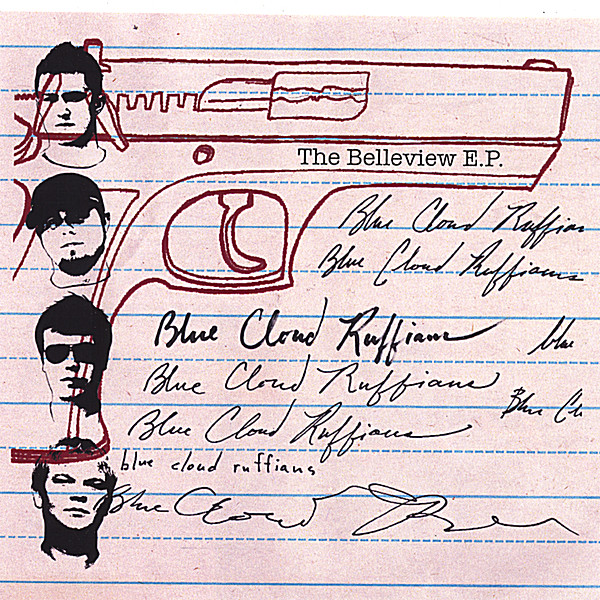 The Belleview E.P.
Blue Cloud Ruffian
Blue Cloud Ruffians
Blue Cloud Ruffians
blue
Blue Cloud Ruffians
Blue Cl
Blue Cloud Ruffians
blue cloud ruffians
Blue Cloud